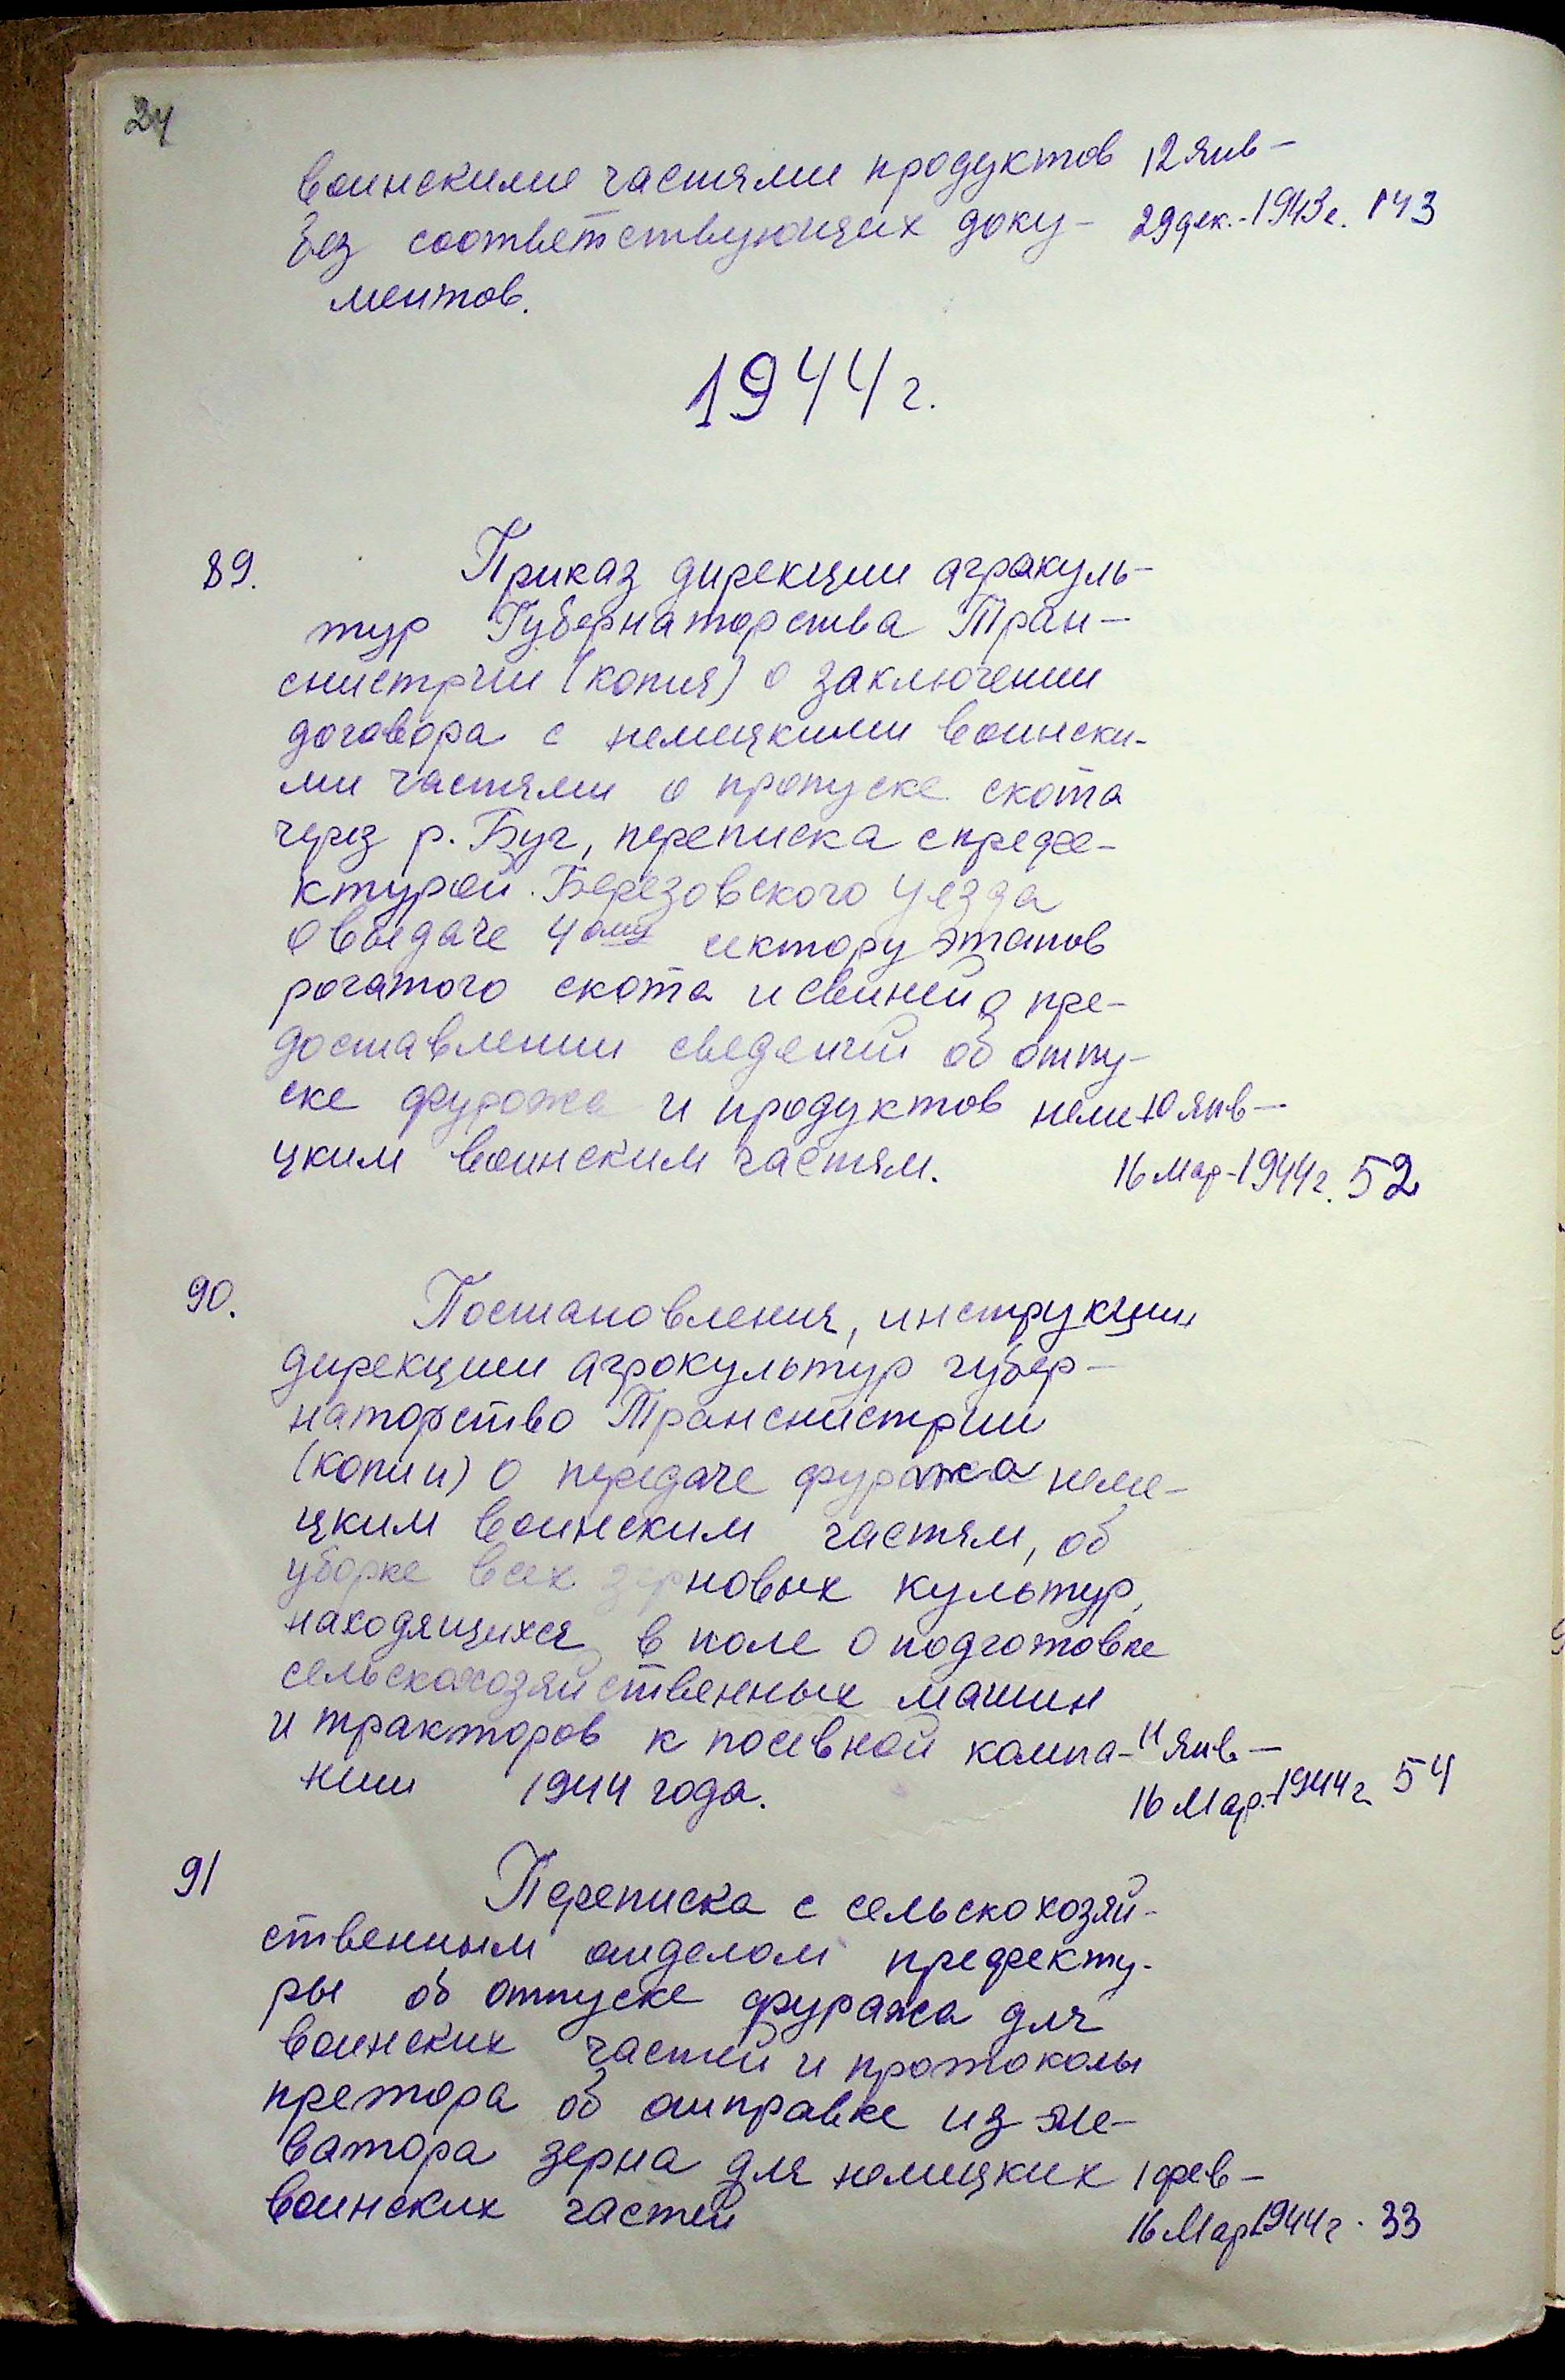 24
воинскими частями продуктов 12 янв –
без соответствующих доку – 29 дек. - 1943 г. 143
ментов.
1944 г.
89. Приказ дирекции агракуль-
тур Губернаторства Тран-
снистрии (копия) о заключении
договора с немецкими воински-
ми частями о пропуске скота
через р. Буг, переписка с префе-
ктурой Березовского уезда
о выдаче 4ому сектору этапов
рогатого скота и свиней, о пре-
доставлении сведений об отпу-
ске фуража и продуктов неме 10 янв –
цким воинским частям. 16 мар - 1944 г. 52
90. Постановления, инструкции
дирекции агрокультур губер-
наторство Транснистрии
(копии) о передаче фуража неме-
цким воинским частям, об
уборке всех зерновых культур,
находящихся в поле о подготовке
сельскохозяйственных машин
и тракторов к посевной кампа- 11 янв –
нии 1944 года. 16 Мар. - 1944 г. 54
91 Переписка с сельскохозяй-
ственным отделом префекту-
ры об отпуске фуража для
воинских частей и протоколы
претора об отправке из эле-
ватора зерна для немецких 1 фев –
воинских частей 16 Мар 1944 г. 33